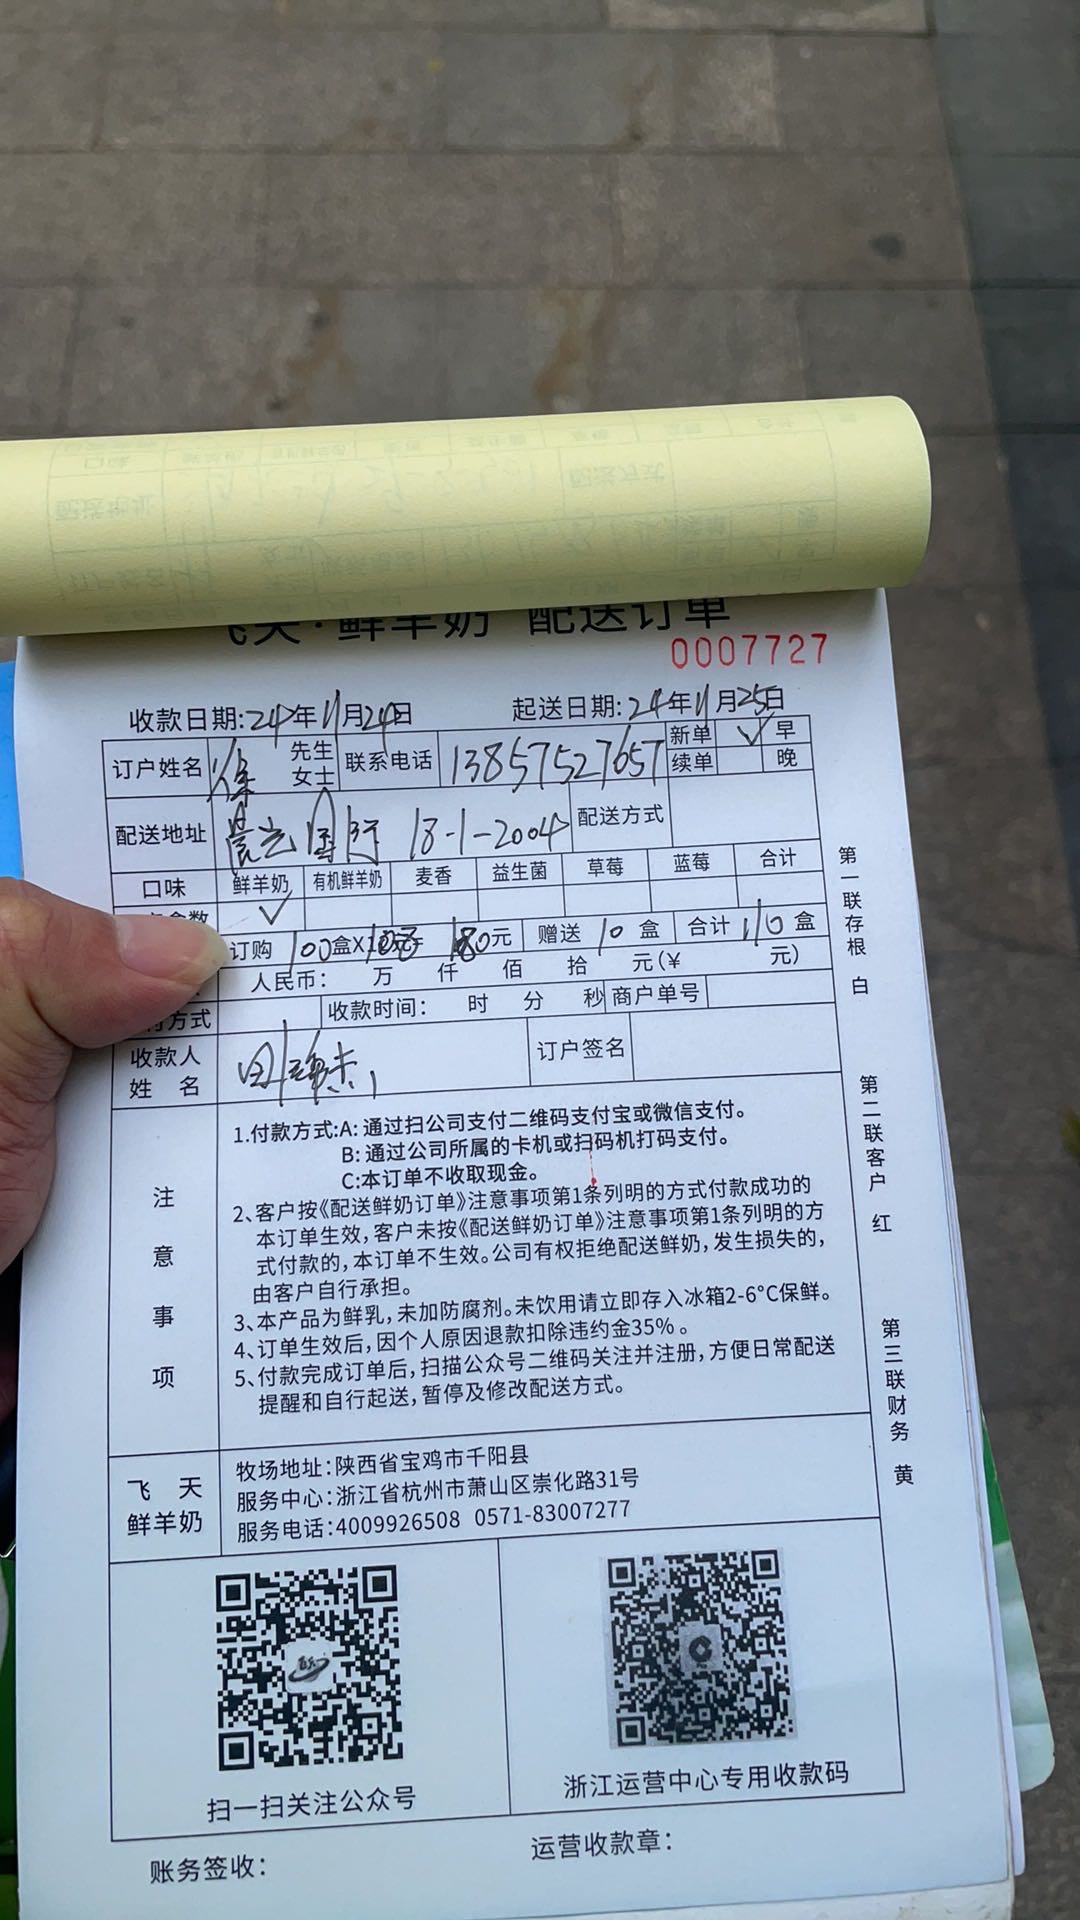 飞天·鲜羊奶 配送订单
0007727
收款日期:24年11月24日 起送日期:24年11月25日
订户姓名 徐 先生 女士 联系电话 13857527657 新单 ✓ 早
续单 晚
配送地址 18-1-2004 配送方式
口味 鲜羊奶 有机鲜羊奶 麦香 益生菌 草莓 蓝莓 合计
盒数 ✓
订购 100盒X 元 元 赠送 10 盒 合计 110 盒
人民币: 万 仟 佰 拾 元(¥ 元)
付方式 收款时间: 时 分 秒 商户单号
收款人
姓 名 订户签名
注意事项
1.付款方式:A:通过扫公司支付二维码支付宝或微信支付。
B:通过公司所属的卡机或扫码机打码支付。
C:本订单不收取现金。
2、客户按《配送鲜奶订单》注意事项第1条列明的方式付款成功的
本订单生效,客户未按《配送鲜奶订单》注意事项第1条列明的方
式付款的,本订单不生效。公司有权拒绝配送鲜奶,发生损失的,
由客户自行承担。
3、本产品为鲜乳,未加防腐剂。未饮用请立即存入冰箱2-6°C保鲜。
4、订单生效后,因个人原因退款扣除违约金35%。
5、付款完成订单后,扫描公众号二维码关注并注册,方便日常配送
提醒和自行起送,暂停及修改配送方式。
飞 天
鲜羊奶
牧场地址:陕西省宝鸡市千阳县
服务中心:浙江省杭州市萧山区崇化路31号
服务电话:4009926508 0571-83007277
扫一扫关注公众号
浙江运营中心专用收款码
账务签收:
运营收款章:
第一联存根 白
第二联客户 红
第三联财务 黄